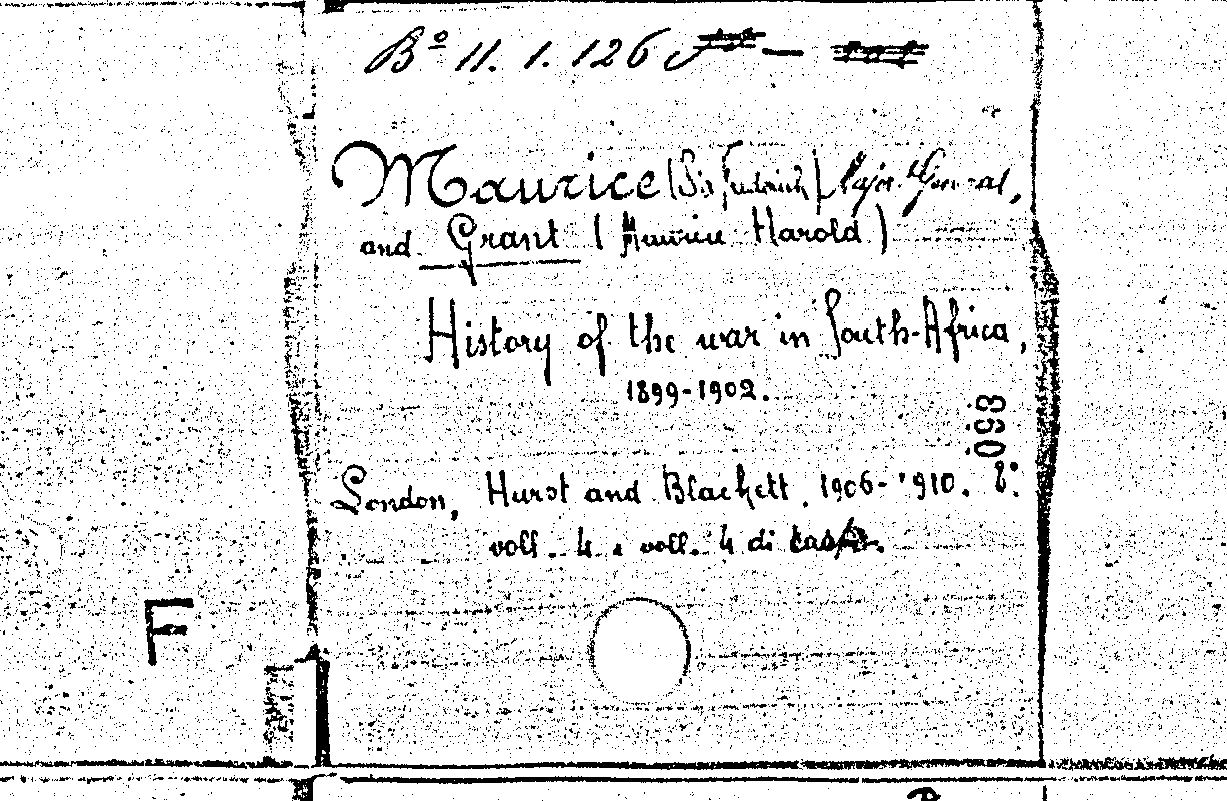 Bº 11. 1. 126
Maurice (Sir Frederick) Major-General,
and Grant (Maurice Harold)
History of the war in South-Africa,
1899-1902.
093
London, Hurst and Blackett, 1906-'910. 8º.
voll. 4 e voll. 4 di
F